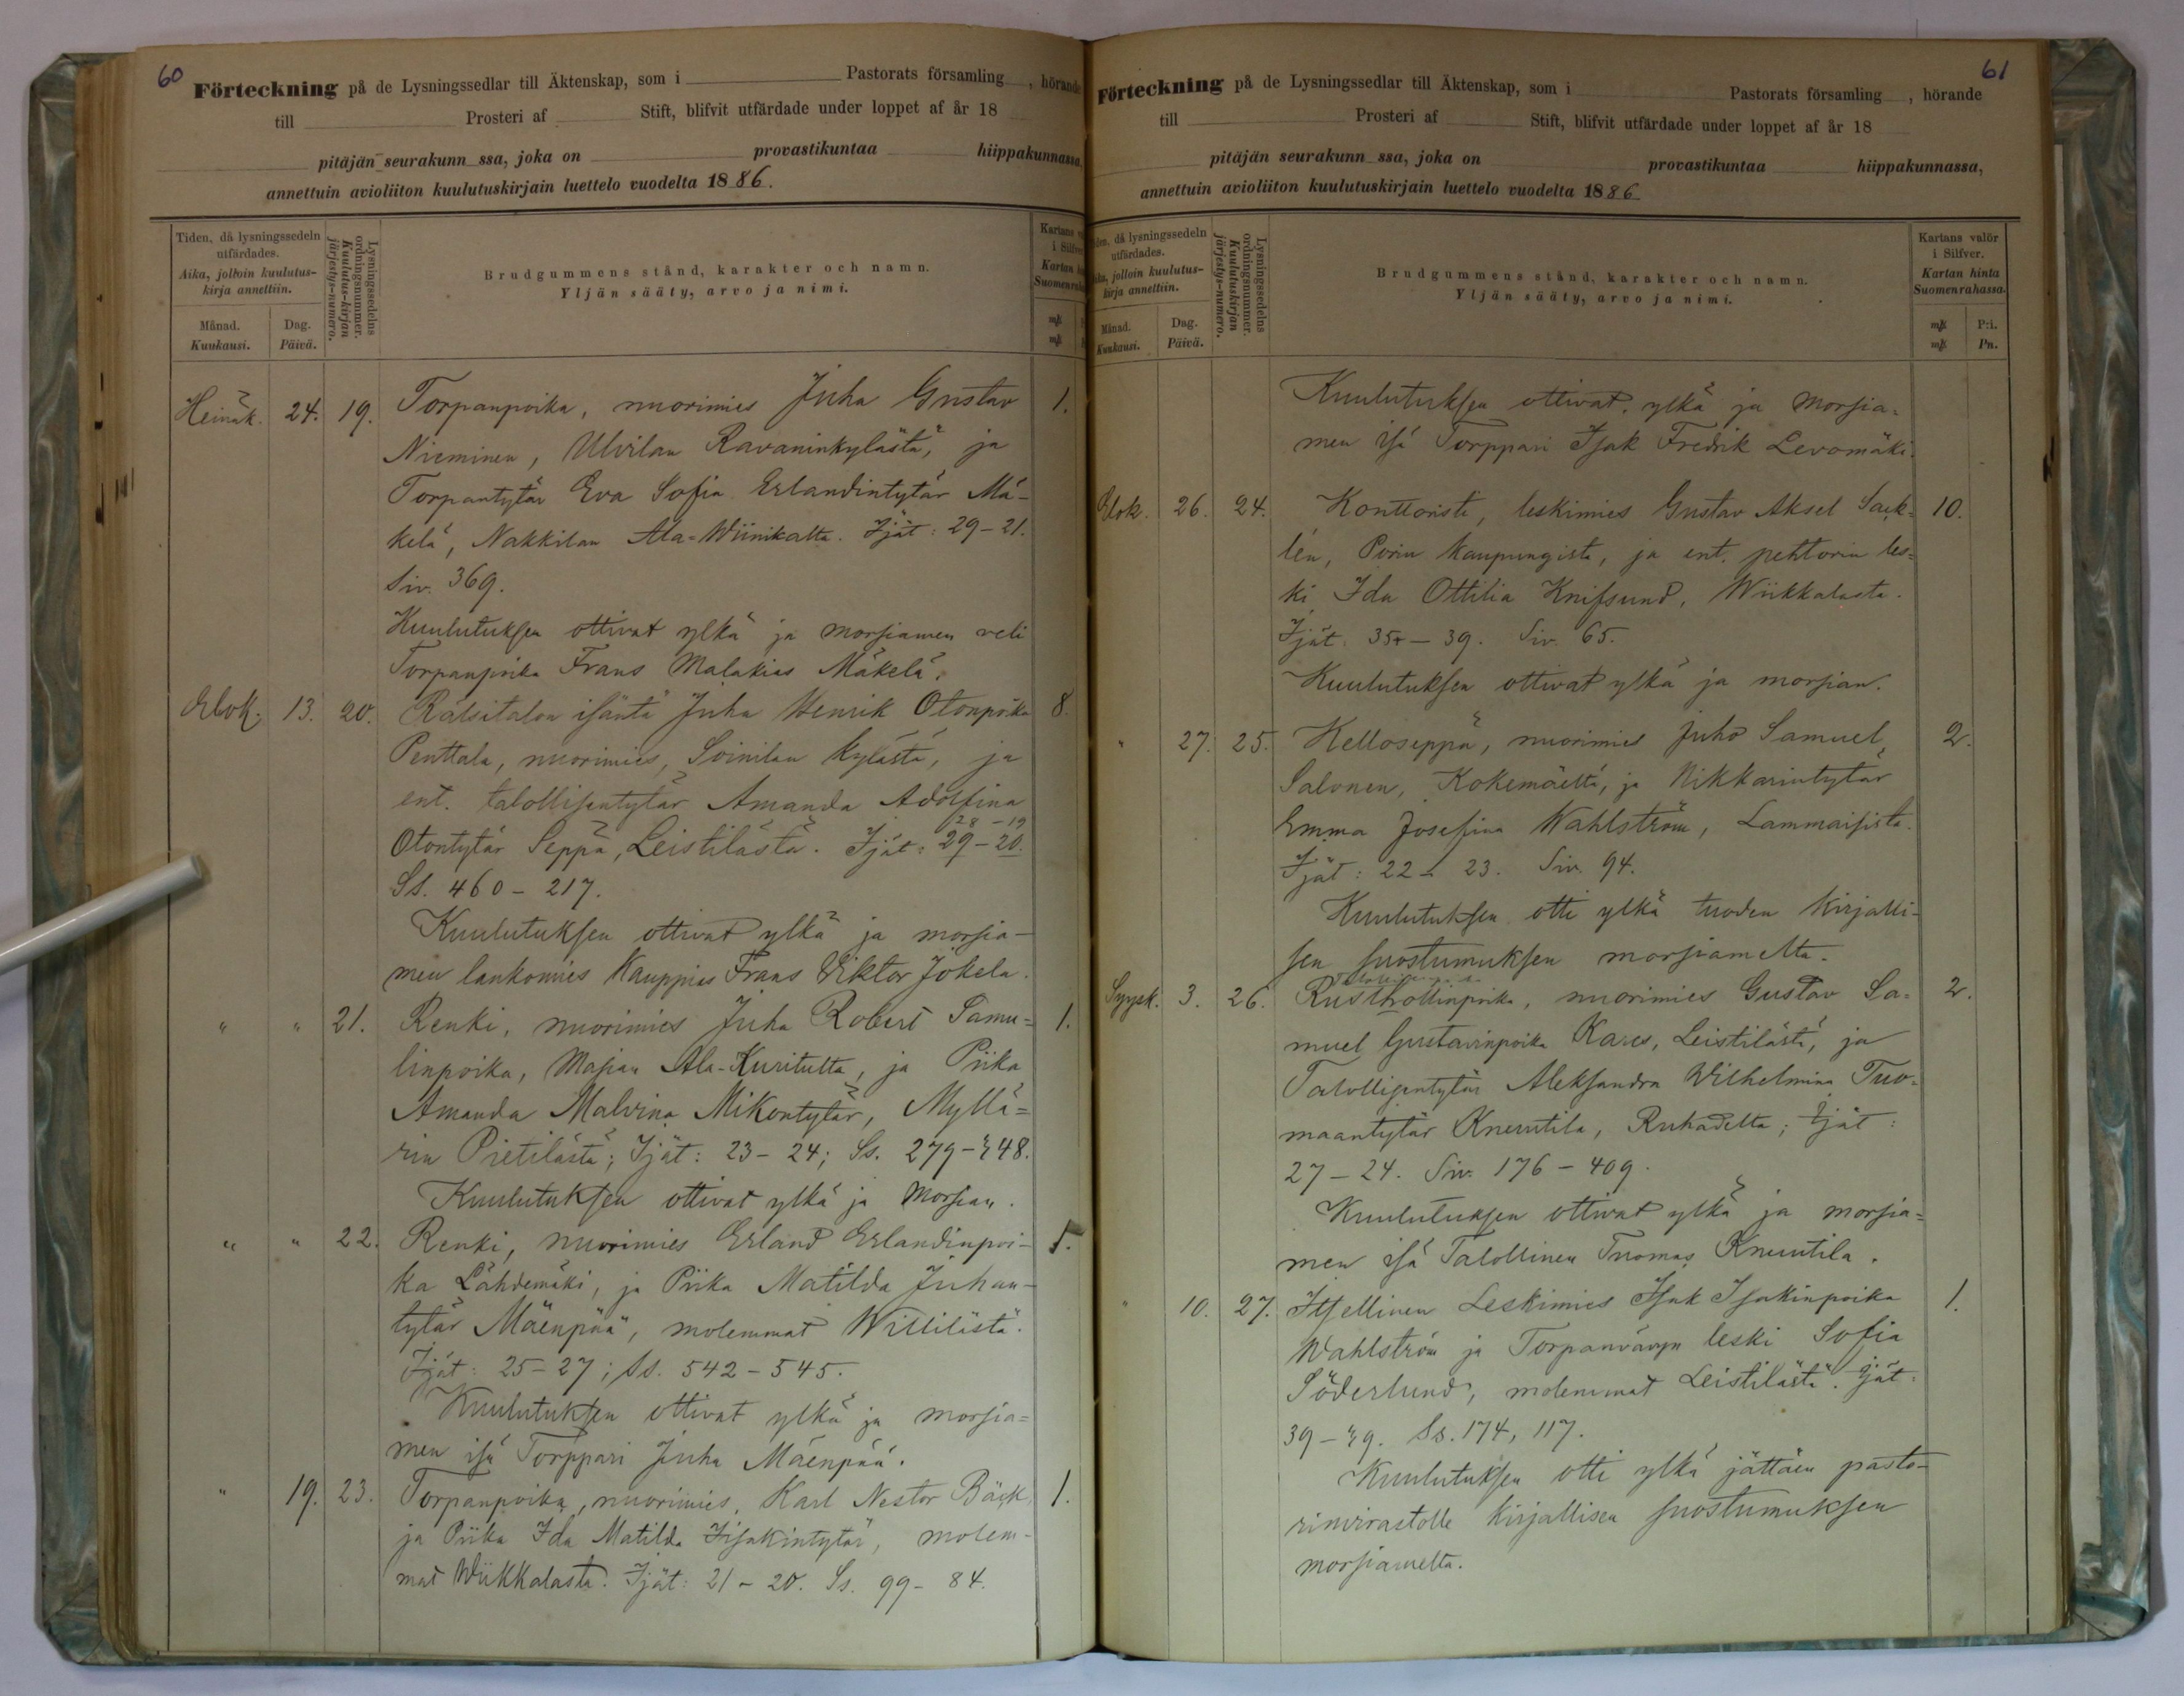 60
Förteckning på de Lysningssedlar till Äktenskap, som i Pastorats församling , hörande
till Prosteri af Stift, blifvit utfärdade under loppet af år 18
pitäjän seurakunn ssa, joka on provastikuntaa hiippakunnassa,
annettuin avioliiton kuulutuskirjain luettelo vuodelta 1886.
Tiden, då lysningssedeln
utfärdades.
Aika, jolloin kuulutus-
kirja annettiin.
Månad.
Kuukausi.
Dag.
Päivä.
Lysningssedelns
ordningsnummer.
Kuulutus-kirjan
järjestys-numero.
Brudgummens stånd, karakter och namn.
Yljän sääty, arvo ja nimi.
Kartans
i Silfver
Kartan
Suomenraha
mk
mk
Heinäk. 24. 19. Torpanpoika, nuorimies Juha Gustav 1.
Nieminen, Ulvilan Ravaninkylästä, ja
Torpantytär Eva Sofia Erlandintytär Mä-
kelä, Nakkilan Ala-Wiinikalta. Ijät: 29-21.
Siv. 369.
Kuulutuksen ottivat ylkä ja morsiamen veli
Torpanpoika Frans Malakias Mäkelä.
Elok. 13. 20. Rälsitalon isäntä Juha Henrik Otonpoika 8.
Penttala, nuorimies, Soinilan kylästä, ja
ent. talollisentytär Amanda Adolfina
28-19
Otontytär Seppä, Leistilästä. Ijät: 29-20.
Ss. 460-217.
Kuulutuksen ottivat ylkä ja morsia-
men lankomies Kauppias Frans Viktor Jokela.
" " 21. Renki, nuorimies Juha Robert Samu= 1.
linpoika, Masian Ala-Kuritulta, ja Piika
Amanda Malvina Mikontytär, Myllä=
rin Pietilästä; Ijät: 23-24; Ss. 279-348.
Kuulutuksen ottivat ylkä ja morsian.
" " 22. Renki, nuorimies Erland Erlandinpoi- 1.
ka Lähdemäki, ja Piika Matilda Juhan-
tytär Mäenpää, molemmat Willilästä.
Ijät: 25-27; Ss. 542-545.
Kuulutuksen ottivat ylkä ja morsia=
men isä Torppari Juha Mäenpää.
" 19. 23. Torpanpoika, nuorimies, Karl Nestor Bäck, 1.
ja Piika Ida Matilda Iisakintytär, molem-
mat Wiikkalasta. Ijät: 21-20. Ss. 99-84.
61
Förteckning på de Lysningssedlar till Äktenskap, som i Pastorats församling , hörande
till Prosteri af Stift, blifvit utfärdade under loppet af år 18
pitäjän seurakunn ssa, joka on provastikuntaa hiippakunnassa,
annettuin avioliiton kuulutuskirjain luettelo vuodelta 1886
Tiden, då lysningssedeln
utfärdades.
Aika, jolloin kuulutus-
kirja annettiin.
Månad.
Kuukausi.
Dag.
Päivä.
Lysningssedelns
ordningsnummer.
Kuulutuskirjan
järjestys-numero.
Brudgummens stånd, karakter och namn.
Yljän sääty, arvo ja nimi.
Kartans valör
i Silfver.
Kartan hinta
Suomenrahassa.
mk P:i.
mk Pn.
Kuulutuksen ottivat, ylkä ja morsia=
men isä Torppari Isak Fredrik Levomäki.
Elok. 26. 24. Konttoristi, leskimies Gustav Aksel Sack= 10.
lén, Porin kaupungista, ja ent. pehtorin les=
ki, Ida Ottilia Knifsund, Wiikkalasta.
Ijät. 35-39. Siv. 65.
Kuulutuksen ottivat ylkä ja morsian.
" 27. 25. Kelloseppä, nuorimies Juho Samuel 2.
Salonen, Kokemäeltä, ja Nikkarintytär
Emma Josefina Wahlström, Lammaisista.
Ijät: 22-23. Siv. 94.
Kuulutuksen otti ylkä tuoden kirjalli-
sen suostumuksen morsiamelta.
Syysk. 3. 26. Rusthollinpoika, nuorimies Gustav Sa= 2.
muel Gustavinpoika Kares, Leistilästä, ja
Talollisentytär Aleksandra Wilhelmina Tuo-
maantytär Knuutila, Ruhadelta; Ijät:
27-24. Siv. 176-409.
Kuulutuksen ottivat ylkä ja morsia=
men isä Talollinen Tuomas Knuutila.
" 10. 27. Itsellinen Leskimies Isak Isakinpoika 1.
Wahlström ja Torpanvävyn leski Sofia
Söderlund, molemmat Leistilästä. Ijät:
39-39. Ss. 174, 117.
Kuulutuksen otti ylkä jättäen pasto-
rinvirastolle kirjallisen suostumuksen
morsiamelta.